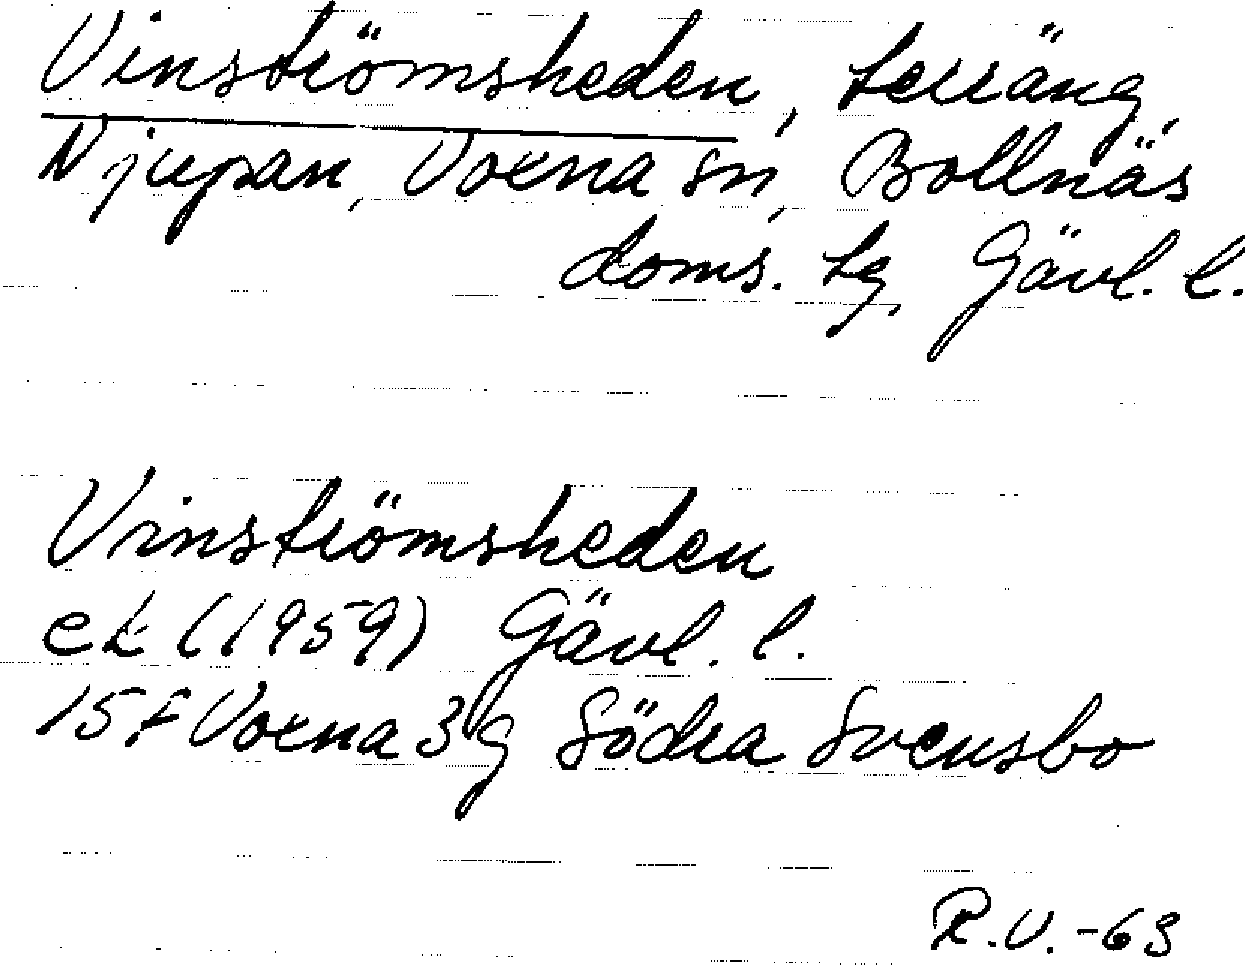 Vinströmsheden, terräng,
Njupan, Voxna sn, Bollnäs
doms. tg, Gävl. l.
Vinströmsheden
ek (1959) Gävl. l.
15 f Voxna 3 g Södra Svensbo
R.V. -63